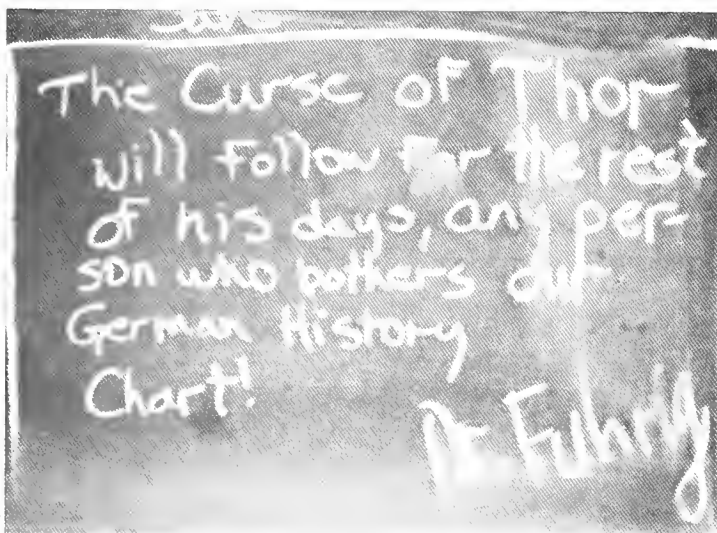 The Curse of Thor
will follow for the rest
of his days, any per-
son who bothers our
German History
Chart!
Dr. Fuhrig